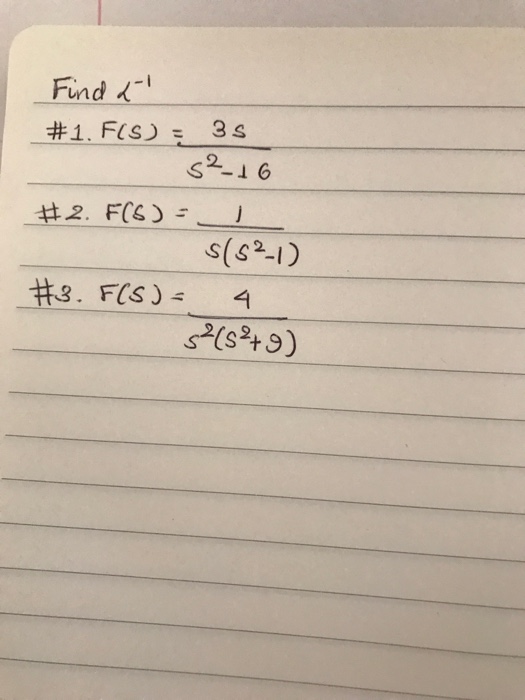 Find ℒ⁻¹
#1. F(s) = 3s / s²-16
#2. F(s) = 1 / s(s²-1)
#3. F(s) = 4 / s²(s²+9)